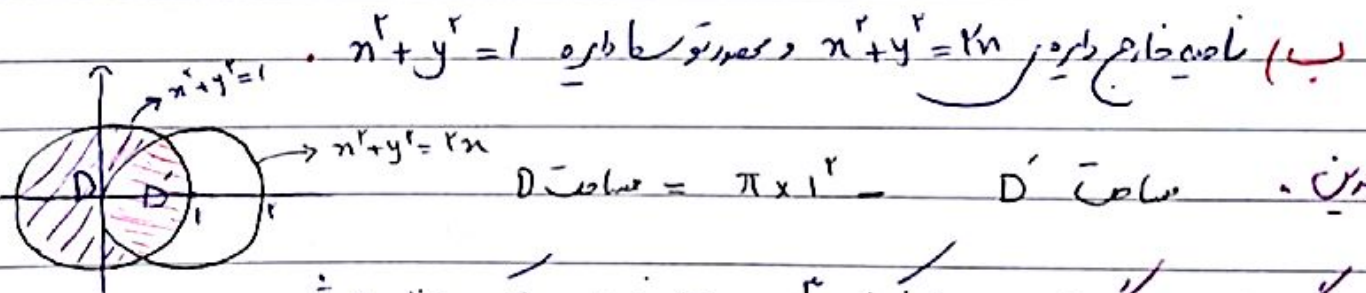 ب) ناحیه خارج دایره x²+y²=۲x و محصور توسط دایره x²+y²=۱ .
x²+y²=۱
x²+y²=۲x
D D′ ۱ ۲
مساحت D = π×۱² − مساحت D′